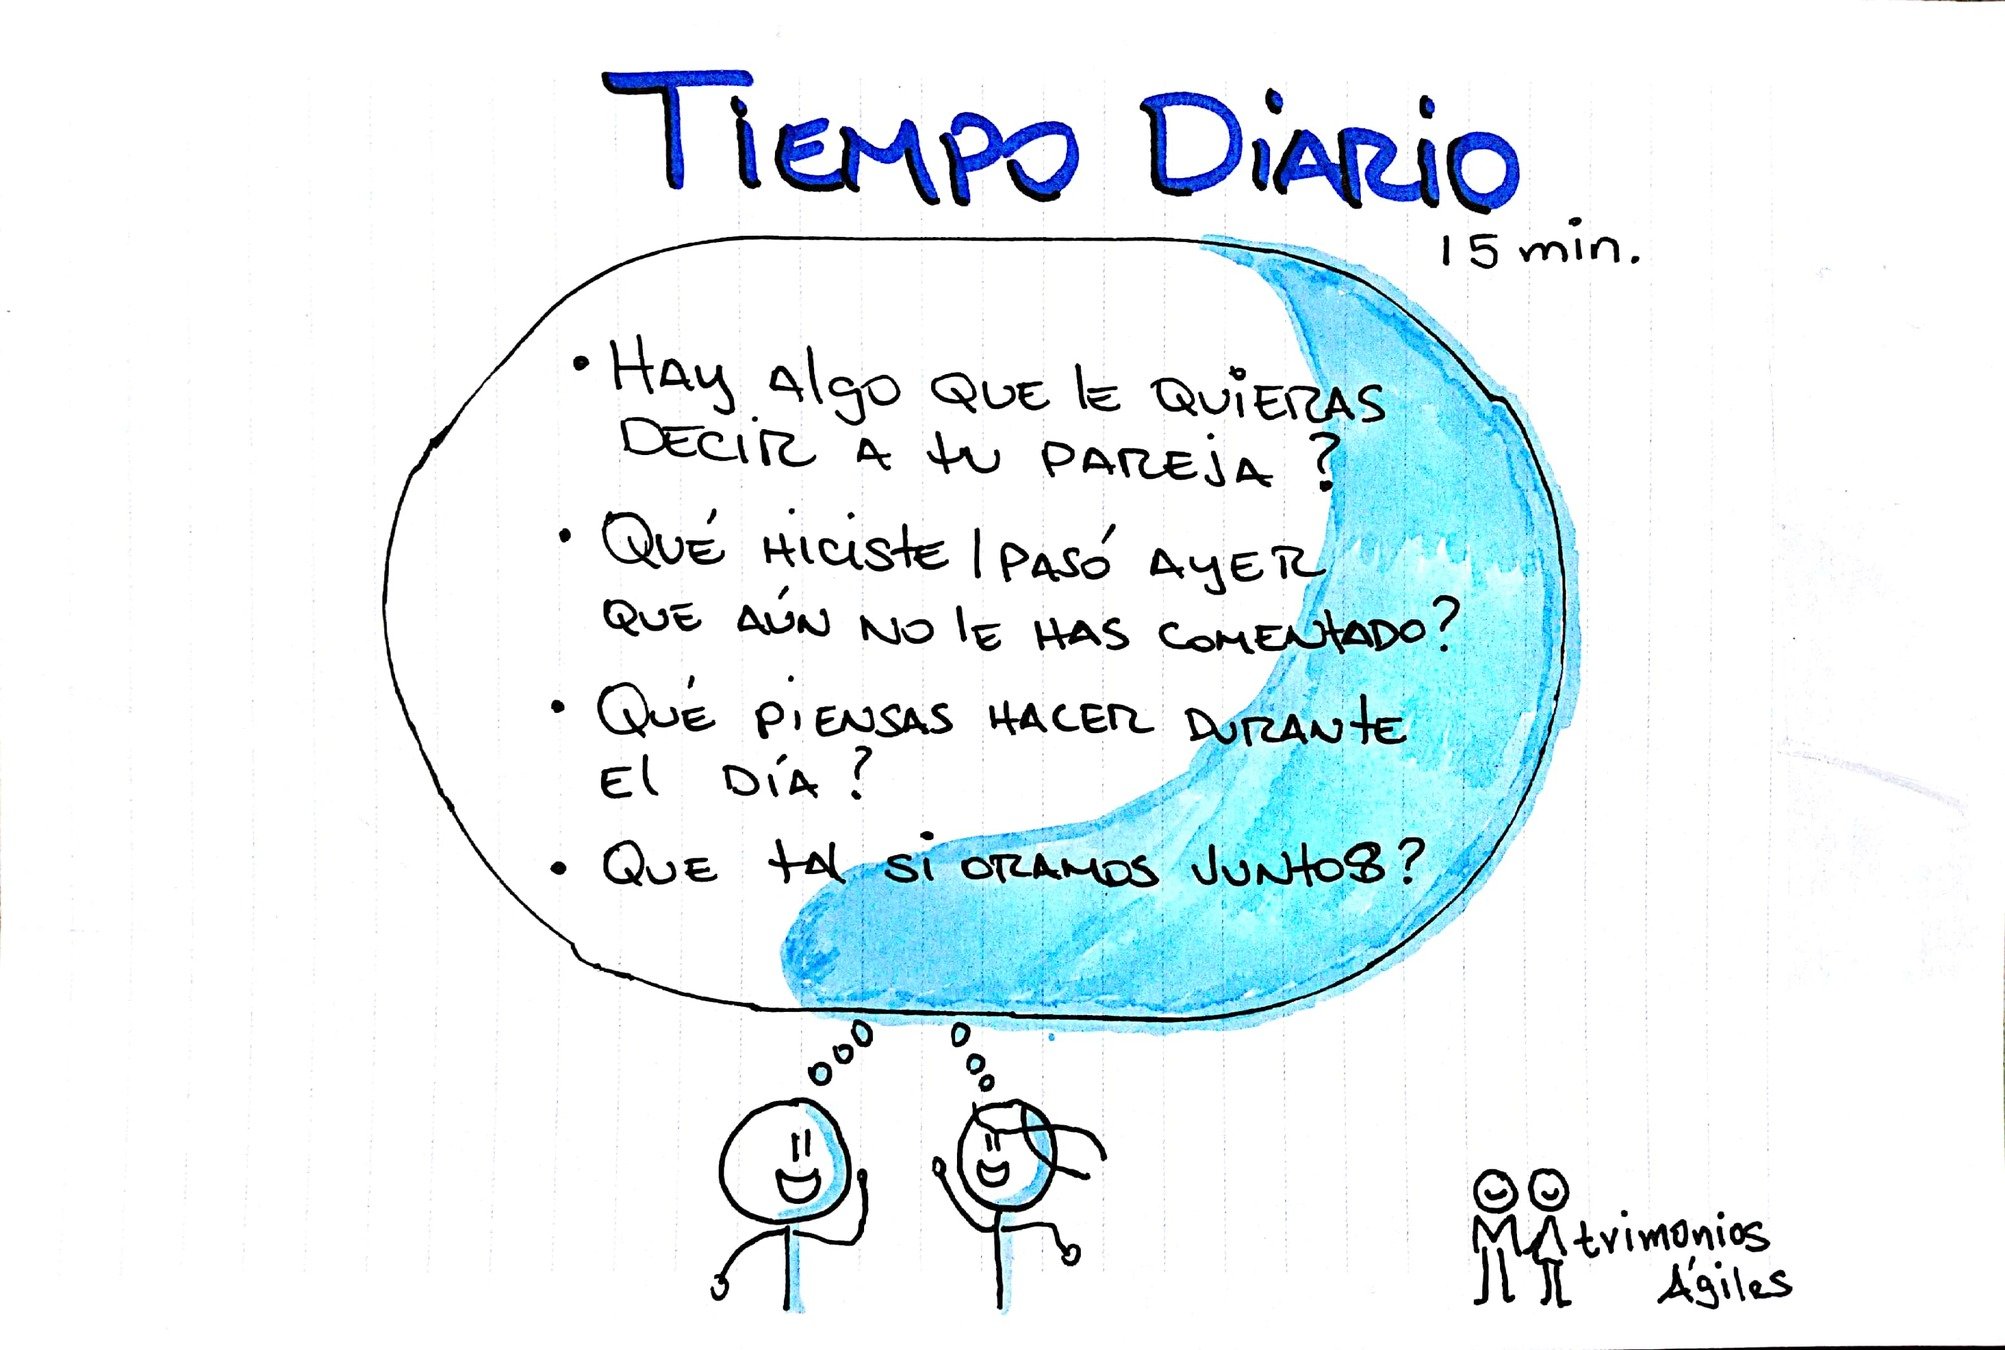 TIEMPO DIARIO
15 min.
• HAY Algo QUE lE QUiERAS
DECiR A tU PAREjA ?
• QUÉ HiCiStE / PASÓ AyER
QUE AÚN NO lE HAS COMENtADO?
• QUÉ PiENSAS HACER DURANtE
El DÍA ?
• QUE tAl Si ORAMOS JUNtOS?
MAtrimonios
Ágiles